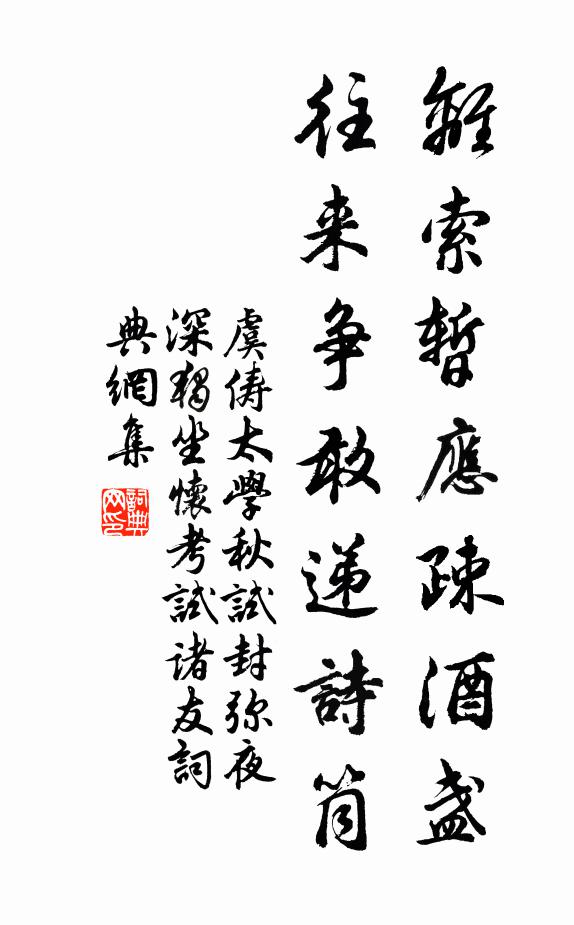 離索暫應疎酒盞
往来争敢递詩筒
虞俦太學秋試封弥夜
深獨坐懷考試诸友詞
典網集
詞典网印